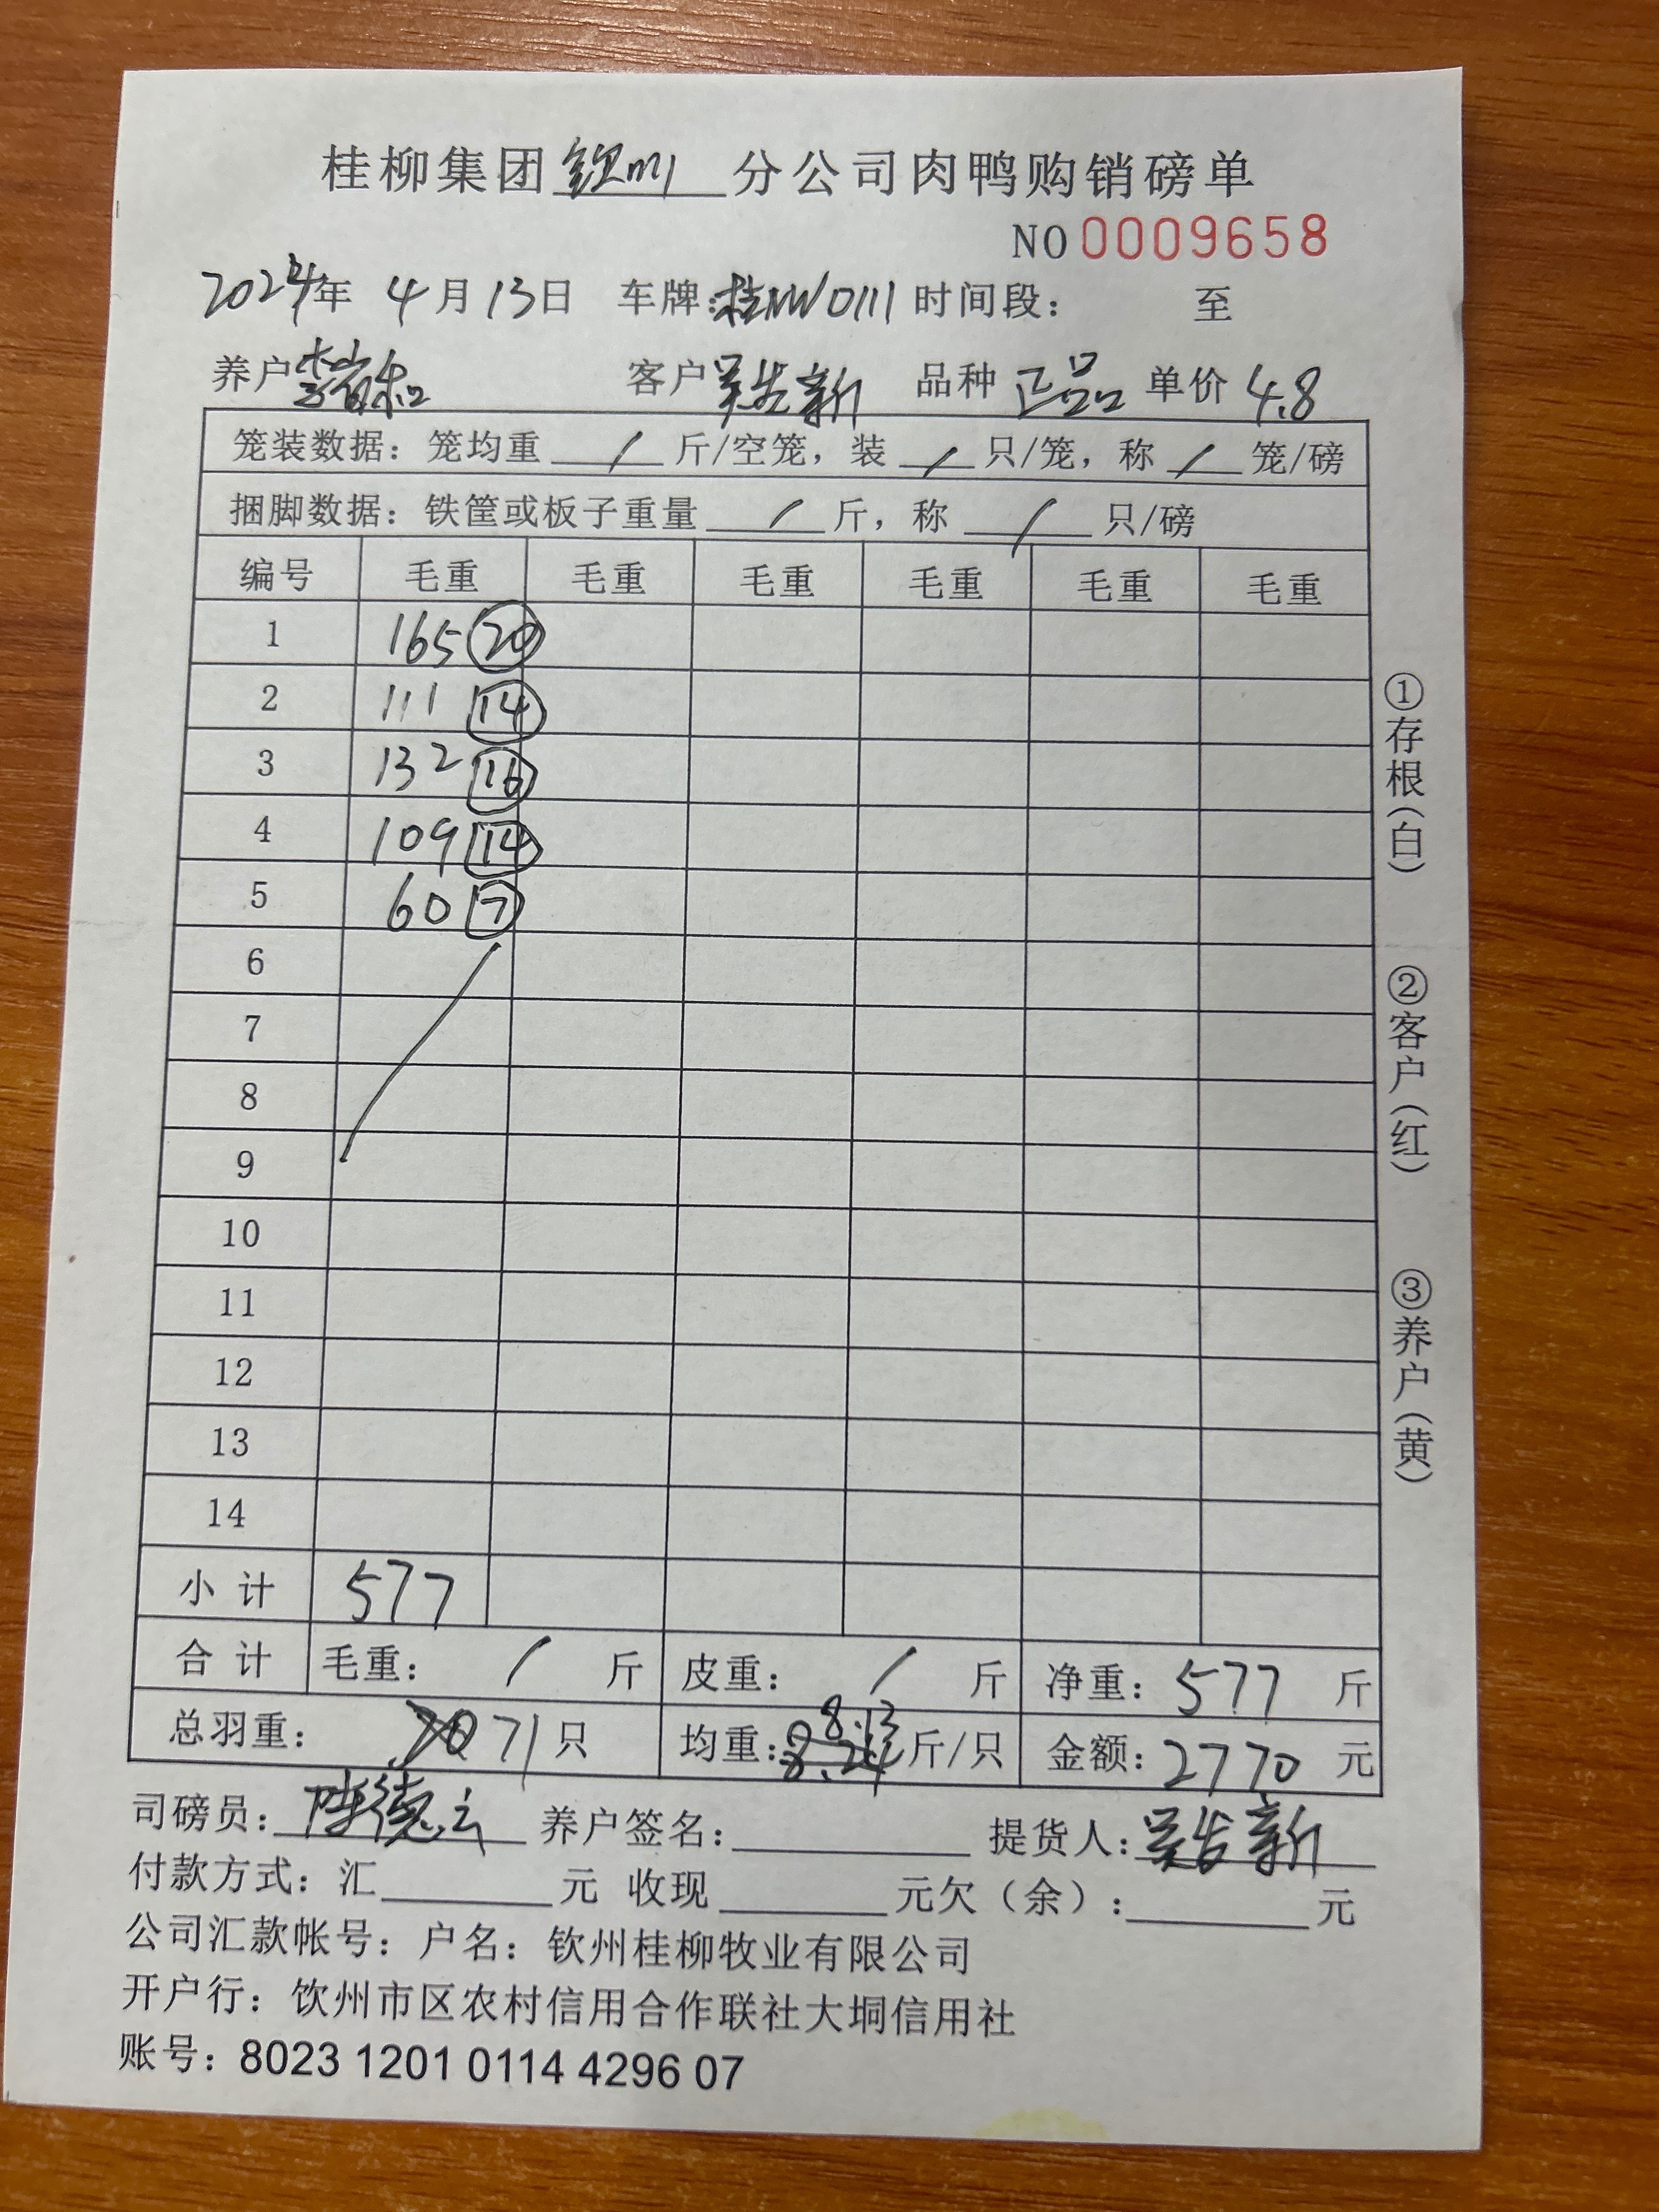 桂柳集团钦州分公司肉鸭购销磅单
NO 0009658
2024年 4月13日 车牌:桂NW0111 时间段: 至
养户 客户 吴发新 品种 正品 单价 4.8
笼装数据: 笼均重 / 斤/空笼, 装 / 只/笼, 称 / 笼/磅
捆脚数据: 铁筐或板子重量 / 斤, 称 / 只/磅
编号 毛重 毛重 毛重 毛重 毛重 毛重
1 165 20
2 111 14
3 132 16
4 109 14
5 60 7
6
7
8
9
10
11
12
13
14
小计 577
合计 毛重: / 斤 皮重: / 斤 净重: 577 斤
总羽重: 70 71只 均重: 8.24 8.13 斤/只 金额: 2770 元
司磅员: 陈德云 养户签名: 提货人: 吴发新
付款方式: 汇 元 收现 元欠(余): 元
公司汇款帐号: 户名: 钦州桂柳牧业有限公司
开户行: 饮州市区农村信用合作联社大垌信用社
账号: 8023 1201 0114 4296 07
①存根(白)
②客户(红)
③养户(黄)